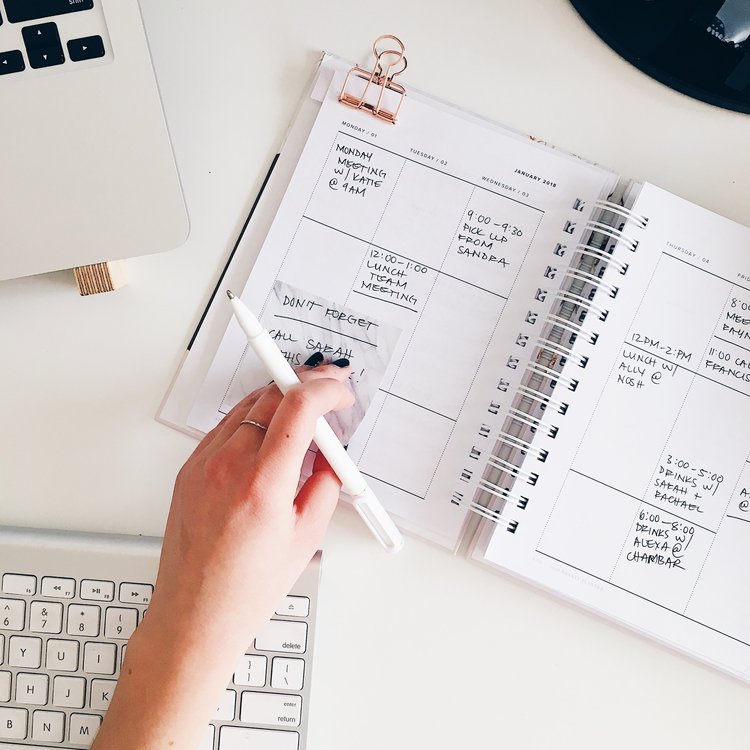 JANUARY 2018
MONDAY / 01
MONDAY
MEETING
W/ KATIE
@ 9AM
TUESDAY / 02
12:00-1:00
LUNCH
TEAM
MEETING
WEDNESDAY / 03
9:00-9:30
PICK UP
FROM
SANDRA
DON'T FORGET
CALL SARAH
THIS
THURSDAY / 04
12PM-2:PM
LUNCH W/
ALLY @
NOSH
3:00-5:00
DRINKS W/
SARAH +
RACHAEL
6:00-8:00
DRINKS W/
ALEXA @
CHAMBAR
8:0
MEE
11:00
CALL
@
delete
enter
return
6
7
8
9
Y
U
I
H
J
K
B
N
M